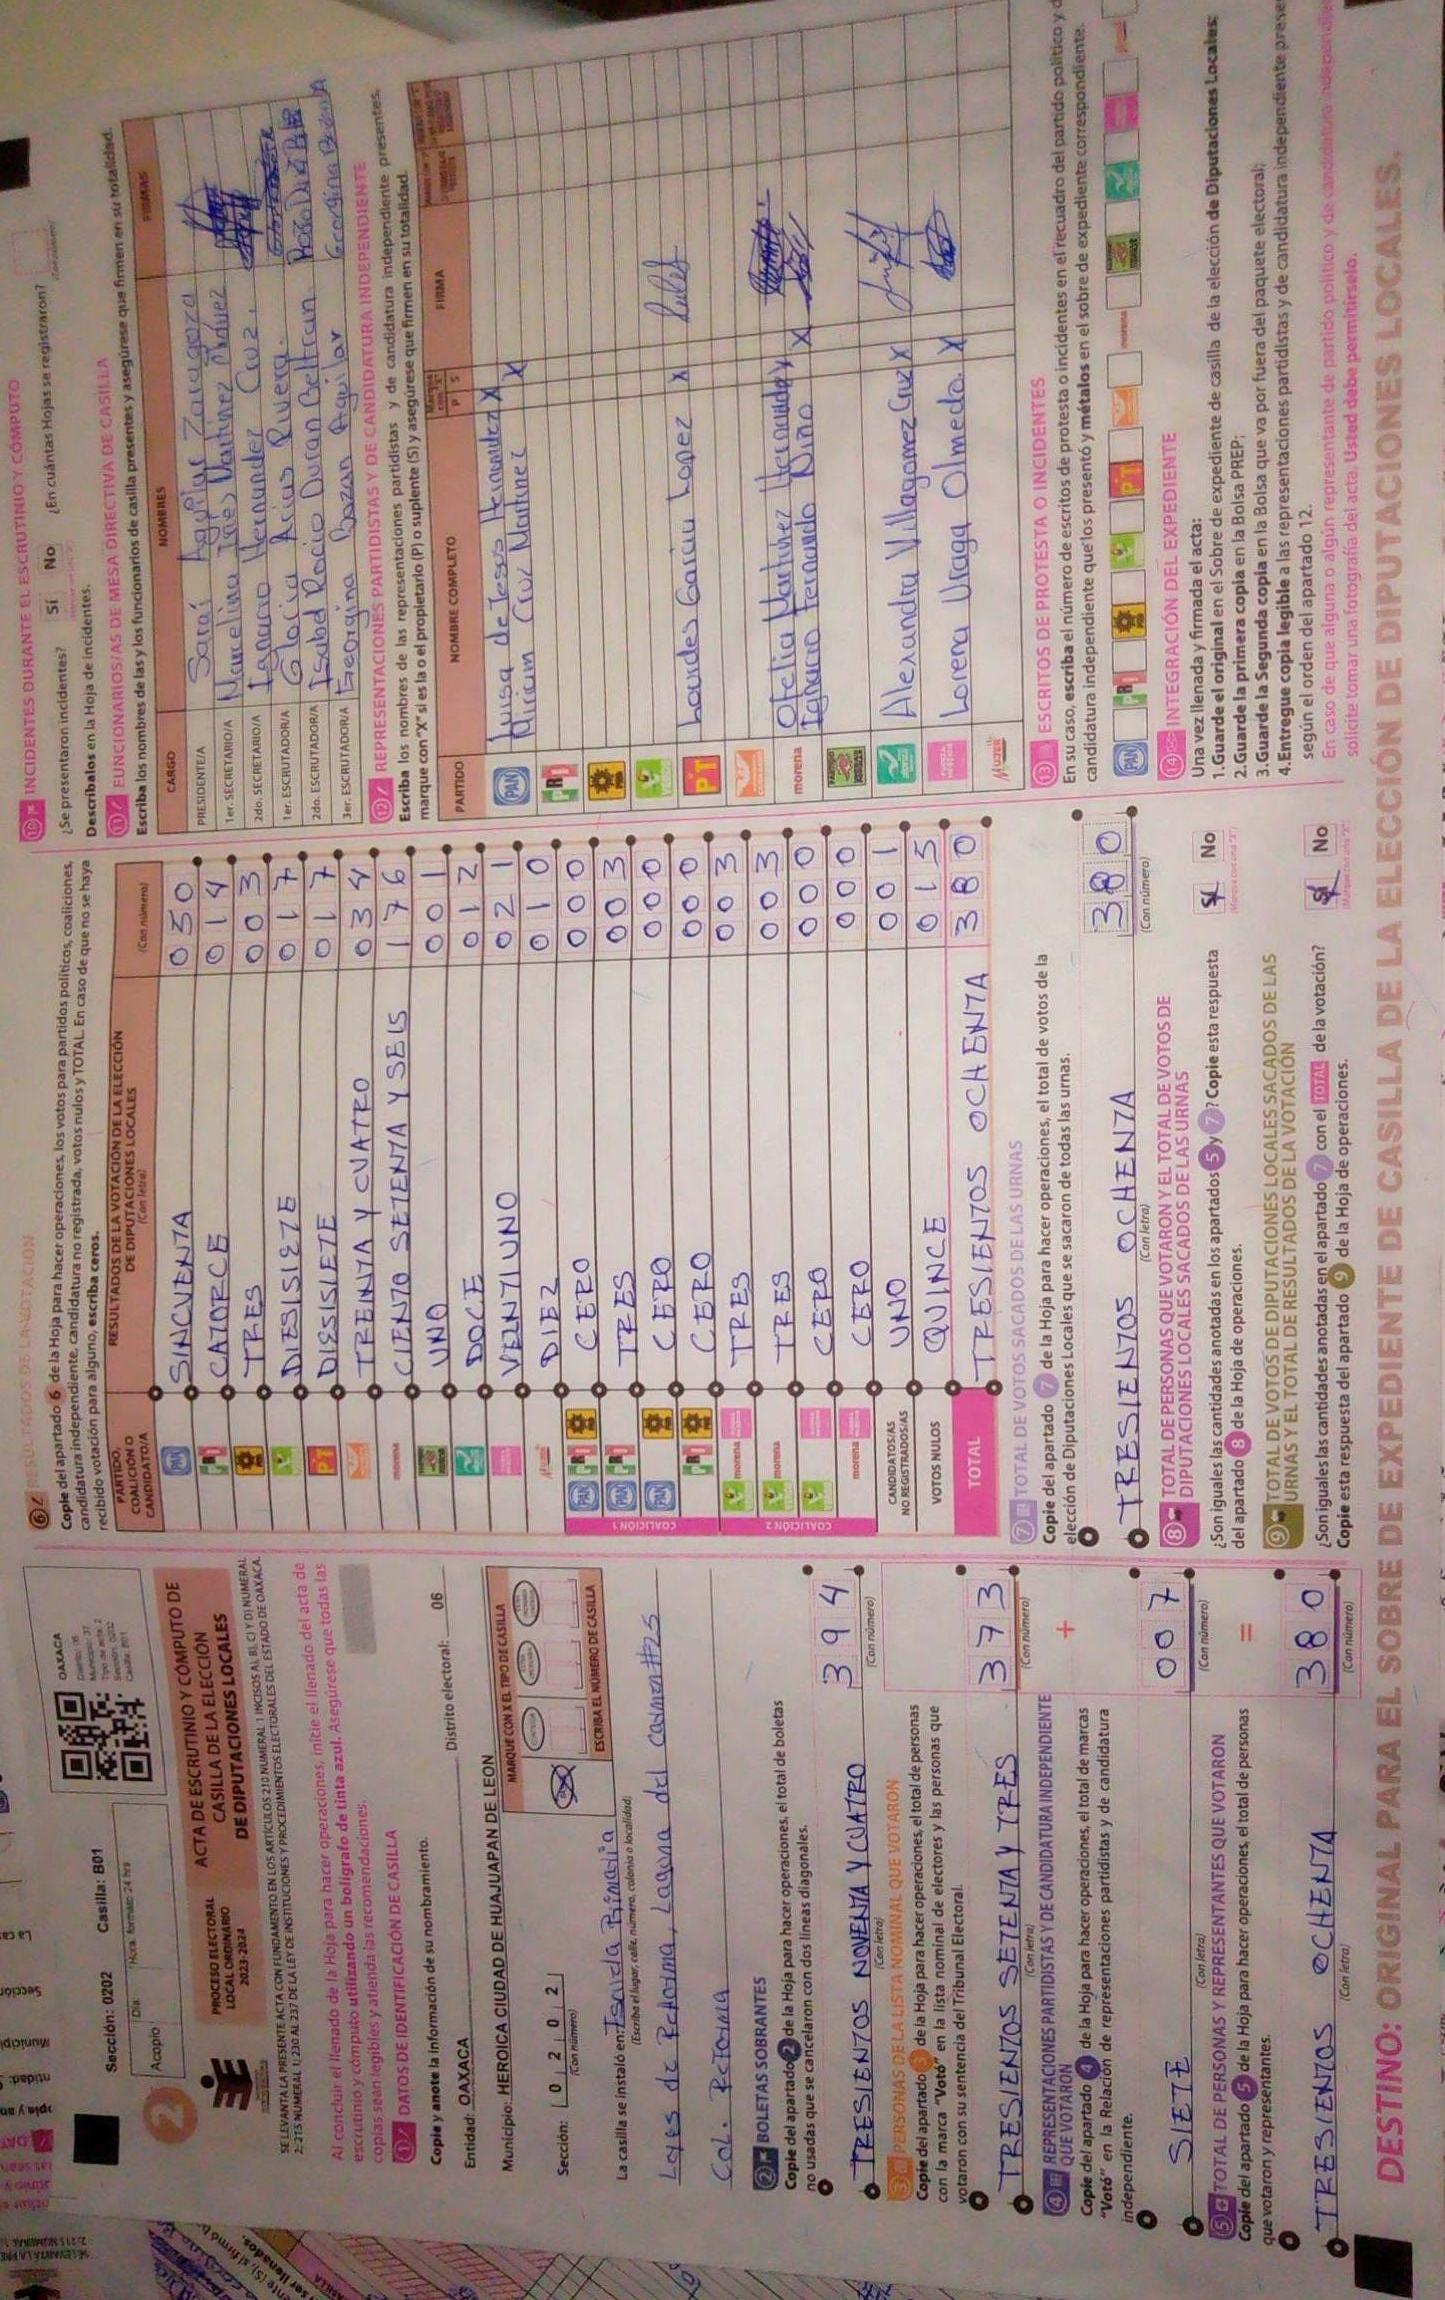 2
Sección: 0202 Casilla: B01
Acopio Día Hora. formato 24 hrs
OAXACA
Distrito: 06
Municipio: 37
Tipo de acta: 2
Sección: 0202
Casilla: B01
PROCESO ELECTORAL
LOCAL ORDINARIO
2023-2024
ACTA DE ESCRUTINIO Y CÓMPUTO DE
CASILLA DE LA ELECCIÓN
DE DIPUTACIONES LOCALES
SE LEVANTA LA PRESENTE ACTA CON FUNDAMENTO EN LOS ARTÍCULOS 210 NUMERAL 1 INCISOS A), B), C) Y D) NUMERAL
2; 215 NUMERAL 1; 230 AL 237 DE LA LEY DE INSTITUCIONES Y PROCEDIMIENTOS ELECTORALES DEL ESTADO DE OAXACA.
Al concluir el llenado de la Hoja para hacer operaciones, inicie el llenado del acta de
escrutinio y cómputo utilizando un bolígrafo de tinta azul. Asegúrese que todas las
copias sean legibles y atienda las recomendaciones.
1 DATOS DE IDENTIFICACIÓN DE CASILLA
Copie y anote la información de su nombramiento.
Entidad: OAXACA Distrito electoral: 06
Municipio: HEROICA CIUDAD DE HUAJUAPAN DE LEON
Sección: 0 2 0 2
(Con número)
MARQUE CON X EL TIPO DE CASILLA
ESCRIBA EL NÚMERO DE CASILLA
La casilla se instaló en: Escuela Primaria
(Escriba el lugar, calle, número, colonia o localidad)
Leyes de Reforma, Laguna del carmen #25
Col. Reforma
2 BOLETAS SOBRANTES
Copie del apartado 2 de la Hoja para hacer operaciones, el total de boletas
no usadas que se cancelaron con dos líneas diagonales.
TRESIENTOS NOVENTA Y CUATRO 3 9 4
(Con letra) (Con número)
3 PERSONAS DE LA LISTA NOMINAL QUE VOTARON
Copie del apartado 3 de la Hoja para hacer operaciones, el total de personas
con la marca "Votó" en la lista nominal de electores y las personas que
votaron con su sentencia del Tribunal Electoral.
TRESIENTOS SETENTA Y TRES 3 7 3
(Con letra) (Con número)
+
4 REPRESENTACIONES PARTIDISTAS Y DE CANDIDATURA INDEPENDIENTE
QUE VOTARON
Copie del apartado 4 de la Hoja para hacer operaciones, el total de marcas
"Votó" en la Relación de representaciones partidistas y de candidatura
independiente.
SIETE 0 0 7
(Con letra) (Con número)
=
5 TOTAL DE PERSONAS Y REPRESENTANTES QUE VOTARON
Copie del apartado 5 de la Hoja para hacer operaciones, el total de personas
que votaron y representantes.
TRESIENTOS OCHENTA 3 8 0
(Con letra) (Con número)
6 RESULTADOS DE LA VOTACIÓN
Copie del apartado 6 de la Hoja para hacer operaciones, los votos para partidos políticos, coaliciones,
candidatura independiente, candidatura no registrada, votos nulos y TOTAL. En caso de que no se haya
recibido votación para alguno, escriba ceros.
PARTIDO, COALICIÓN O CANDIDATO/A
RESULTADOS DE LA VOTACIÓN DE LA ELECCIÓN
DE DIPUTACIONES LOCALES
(Con letra) (Con número)
PAN SINCUENTA 0 5 0
PRI CATORCE 0 1 4
PRD TRES 0 0 3
VERDE DIESISIETE 0 1 7
PT DISISIETE 0 1 7
TREINTA Y CUATRO 0 3 4
morena CIENTO SETENTA Y SEIS 1 7 6
UNO 0 0 1
DOCE 0 1 2
VEINTIUNO 0 2 1
DIEZ 0 1 0
COALICIÓN 1
PAN PRI PRD CERO 0 0 0
PAN PRI TRES 0 0 3
PAN PRD CERO 0 0 0
PRI PRD CERO 0 0 0
COALICIÓN 2
VERDE morena TRES 0 0 3
VERDE morena TRES 0 0 3
VERDE CERO 0 0 0
morena CERO 0 0 0
CANDIDATOS/AS
NO REGISTRADOS/AS UNO 0 0 1
VOTOS NULOS QUINCE 0 1 5
TOTAL TRESIENTOS OCHENTA 3 8 0
7 TOTAL DE VOTOS SACADOS DE LAS URNAS
Copie del apartado 7 de la Hoja para hacer operaciones, el total de votos de la
elección de Diputaciones Locales que se sacaron de todas las urnas.
TRESIENTOS OCHENTA 3 8 0
(Con letra) (Con número)
8 TOTAL DE PERSONAS QUE VOTARON Y EL TOTAL DE VOTOS DE
DIPUTACIONES LOCALES SACADOS DE LAS URNAS
¿Son iguales las cantidades anotadas en los apartados 5 y 7? Copie esta respuesta
del apartado 8 de la Hoja de operaciones.
Sí No
(Marque con una "X")
9 TOTAL DE VOTOS DE DIPUTACIONES LOCALES SACADOS DE LAS
URNAS Y EL TOTAL DE RESULTADOS DE LA VOTACIÓN
¿Son iguales las cantidades anotadas en el apartado 7 con el TOTAL de la votación?
Copie esta respuesta del apartado 9 de la Hoja de operaciones.
Sí No
(Marque con una "X")
10 INCIDENTES DURANTE EL ESCRUTINIO Y CÓMPUTO
¿Se presentaron incidentes? Sí No ¿En cuántas Hojas se registraron?
(Con número)
Descríbalos en la Hoja de incidentes.
11 FUNCIONARIOS/AS DE MESA DIRECTIVA DE CASILLA
Escriba los nombres de las y los funcionarios de casilla presentes y asegúrese que firmen en su totalidad.
CARGO NOMBRES FIRMAS
PRESIDENTE/A Saraí Aguilar Zaragoza
1er. SECRETARIO/A Marcelina Inés Martinez Márquez
2do. SECRETARIO/A Ignacio Hernandez Cruz.
1er. ESCRUTADOR/A Glacia Arias Rivera.
2do. ESCRUTADOR/A Isabel Rocio Duran Beltran.
3er. ESCRUTADOR/A Georgina Bazan Aguilar
12 REPRESENTACIONES PARTIDISTAS Y DE CANDIDATURA INDEPENDIENTE
Escriba los nombres de las representaciones partidistas y de candidatura independiente presentes,
marque con "X" si es la o el propietario (P) o suplente (S) y asegúrese que firmen en su totalidad.
PARTIDO NOMBRE COMPLETO Marque con "X" P S FIRMA
PAN Luisa de Jesus Hernandez X
Miriam Cruz Martinez X
PRI
PRD
VERDE
PT Lourdes Garcia Lopez X
morena Ofelia Martinez Hernandez X
Ignacio Fernando Niño X
Alexandra Villagomez Cruz X
Lorena Uraga Olmedo. X
13 ESCRITOS DE PROTESTA O INCIDENTES
En su caso, escriba el número de escritos de protesta o incidentes en el recuadro del partido político y
candidatura independiente que los presentó y métalos en el sobre de expediente correspondiente.
PAN PRI PRD VERDE PT morena
14 INTEGRACIÓN DEL EXPEDIENTE
Una vez llenada y firmada el acta:
1. Guarde el original en el Sobre de expediente de casilla de la elección de Diputaciones Locales;
2. Guarde la primera copia en la Bolsa PREP;
3. Guarde la Segunda copia en la Bolsa que va por fuera del paquete electoral;
4. Entregue copia legible a las representaciones partidistas y de candidatura independiente
según el orden del apartado 12.
En caso de que alguna o algún representante de partido político y de candidatura
solicite tomar una fotografía del acta. Usted debe permitírselo.
DESTINO: ORIGINAL PARA EL SOBRE DE EXPEDIENTE DE CASILLA DE LA ELECCIÓN DE DIPUTACIONES LOCALES.